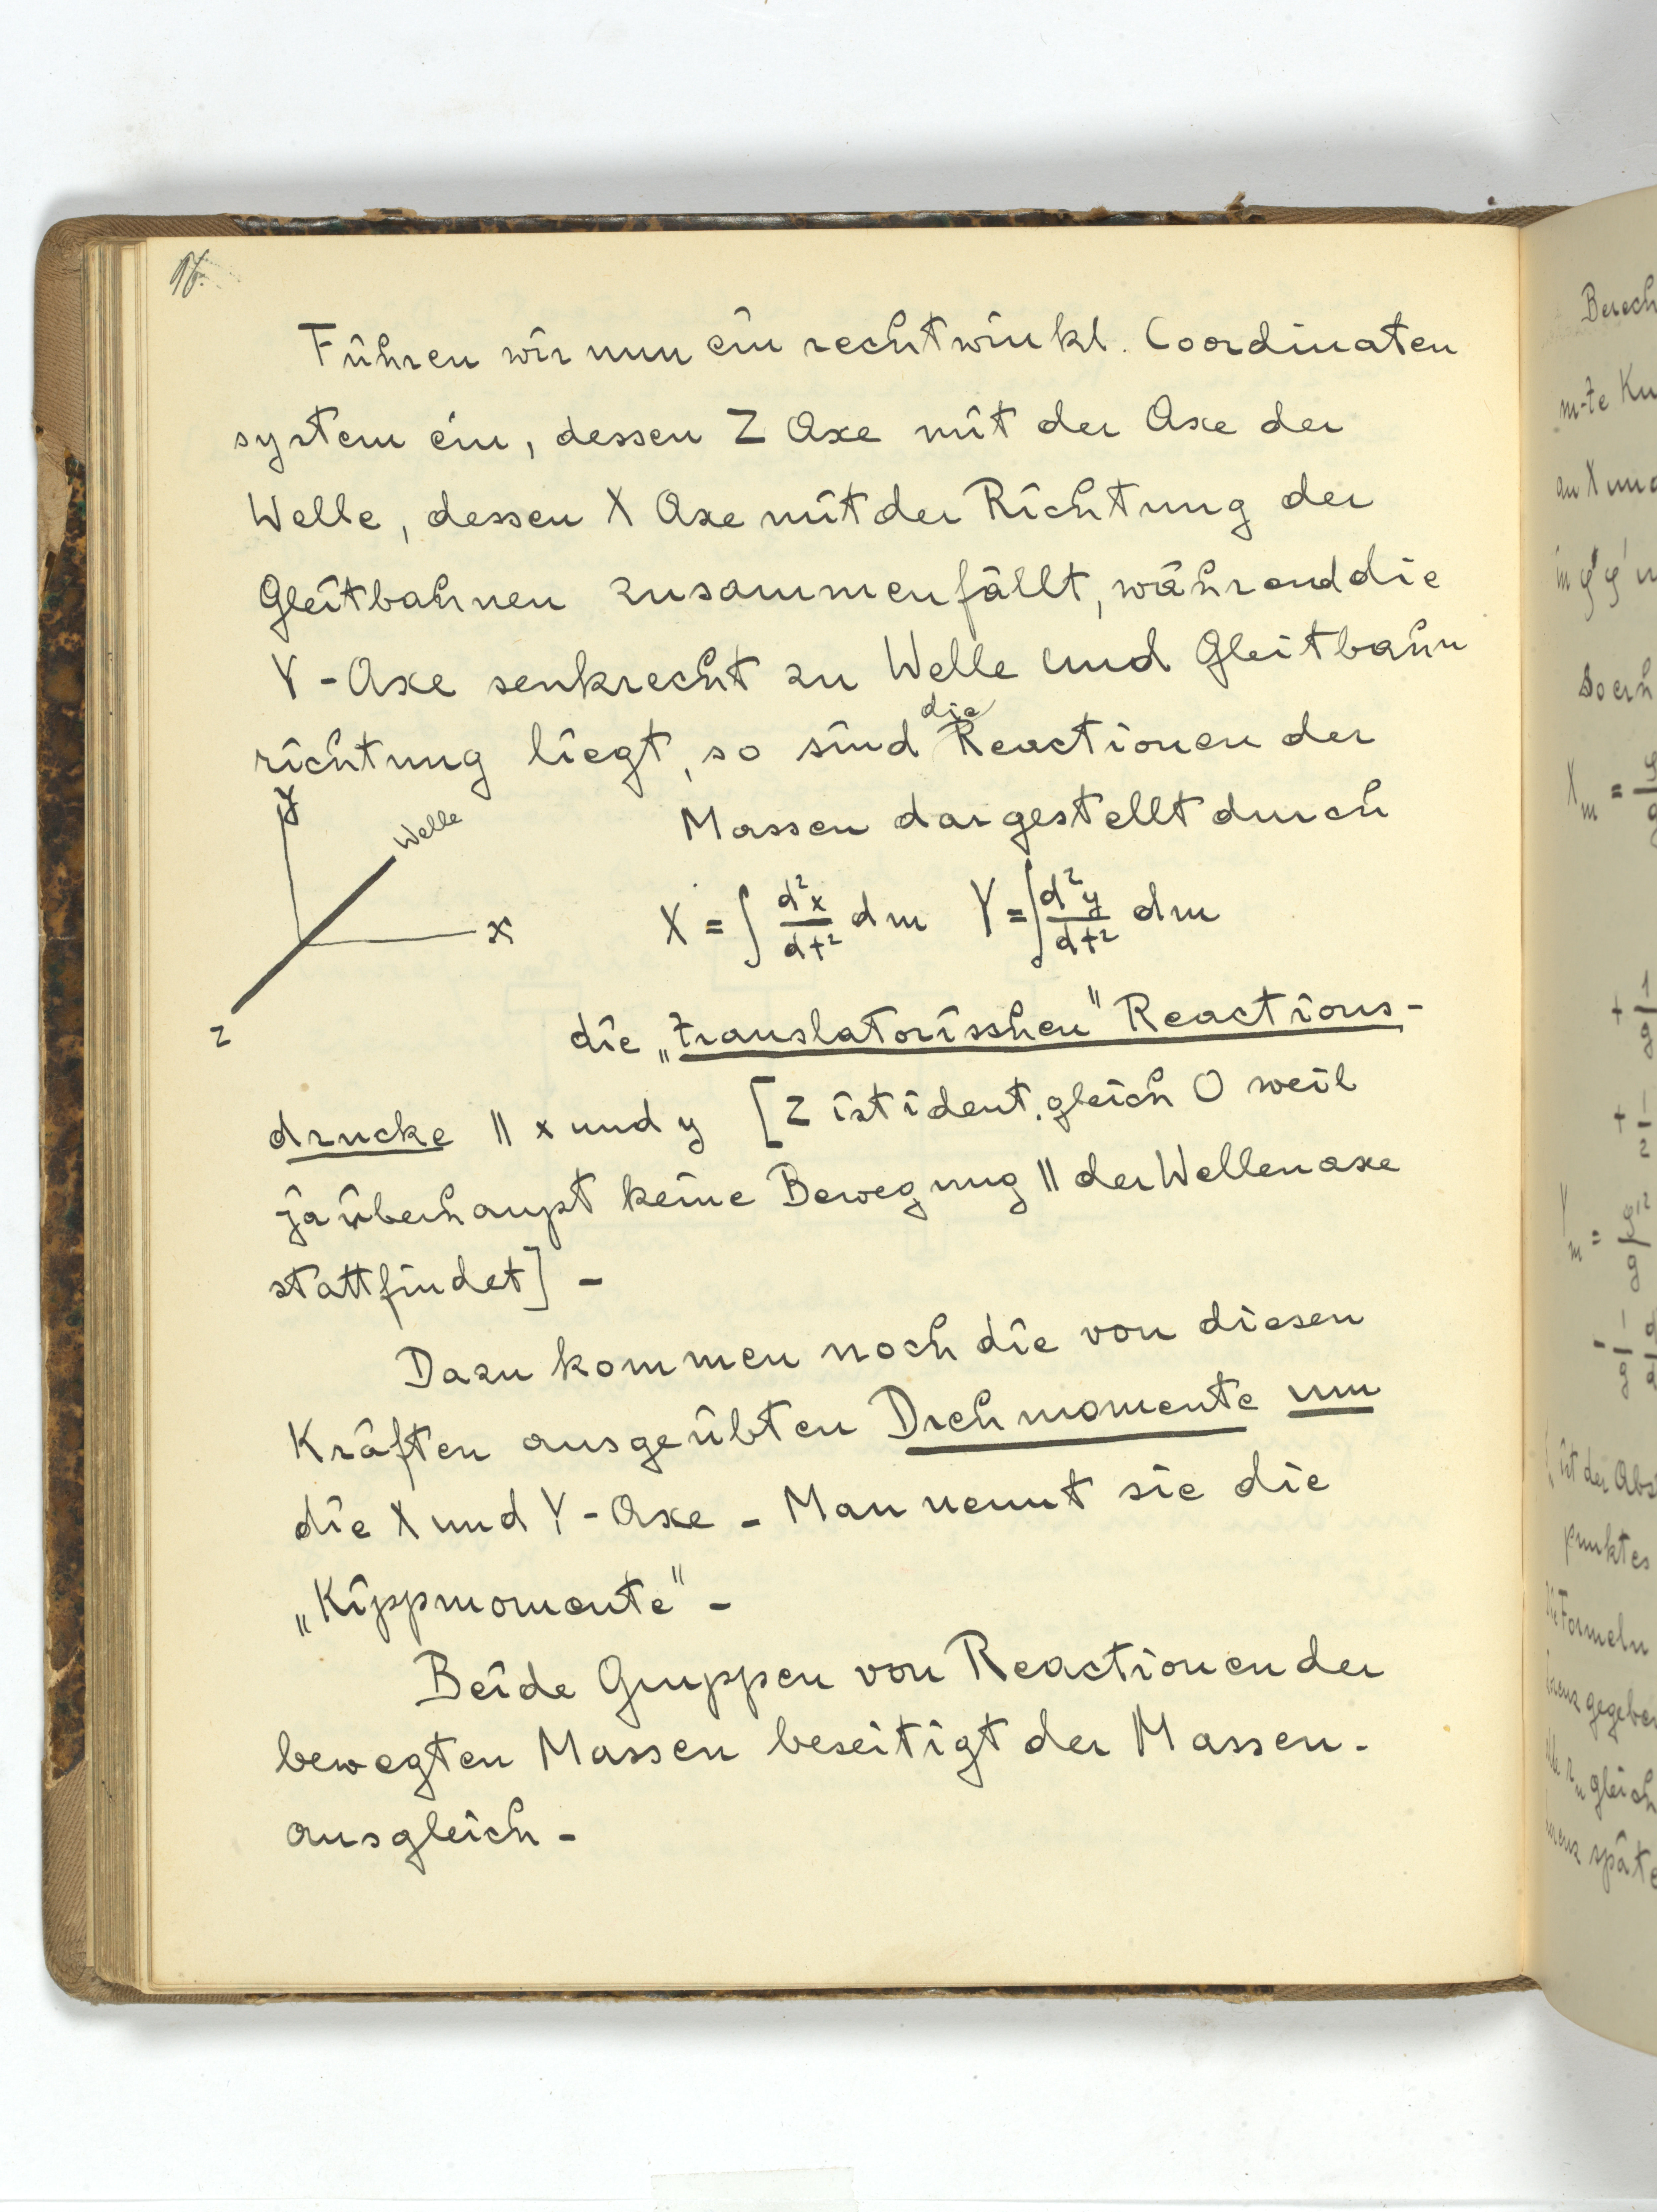 16.
Führen wir nun ein rechtwinkl. Coordinaten
system ein, dessen Z Axe mit der Axe der
Welle, dessen X Axe mit der Richtung der
Gleitbahnen zusammenfällt, während die
Y-Axe senkrecht zu Welle und Gleitbahn
richtung liegt, so sind die Reactionen der
y
Welle
x
z
Massen dargestellt durch
X = ∫ d²x/dt² dm Y = ∫ d²y/dt² dm
die „translatorisschen" Reactions-
drucke || x und y [Z ist ident. gleich O weil
ja überhaupt keine Bewegung || der Wellenaxe
stattfindet] -
Dazu kommen noch die von diesen
Kräften ausgeübten Drehmomente um
die X und Y-Axe - Man nennt sie die
„Kippmomente" -
Beide Gruppen von Reactionen der
bewegten Massen beseitigt der Massen-
ausgleich -
Berech
m-te Ku
an X und
so erh
X_m =
+ 1/g
+ 1/2
Y_m =
ist der Abs
punktes
die Formeln
gegeben
gleich
späte